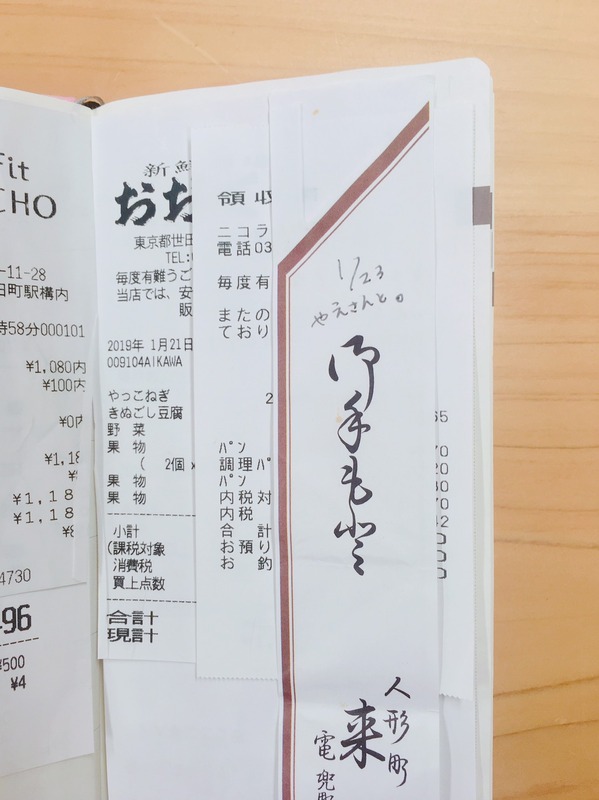 Fit
CHO
-11-28
田町駅構内
時58分000101
¥1,080内
¥100内
¥0内
¥1,18
¥1,18
¥1,18
4730
496
¥500
¥4
新鮮
おお
東京都世田
TEL:
毎度有難うご
当店では、安
販
2019年 1月21日
009104AIKAWA
やっこねぎ
きぬごし豆腐
野 菜
果 物
( 2個 x
果 物
果 物
小計
(課税対象
消費税
買上点数
合計
現計
領 収
ニコラ
電話03
毎度有
またの
ており
2
パン
調理パ
パン
内税対
内税
合 計
お預り
お 釣
65
70
20
80
70
42
0
0
0
1/23
やえさんと。
御手もと
人形町
来
電
兜町